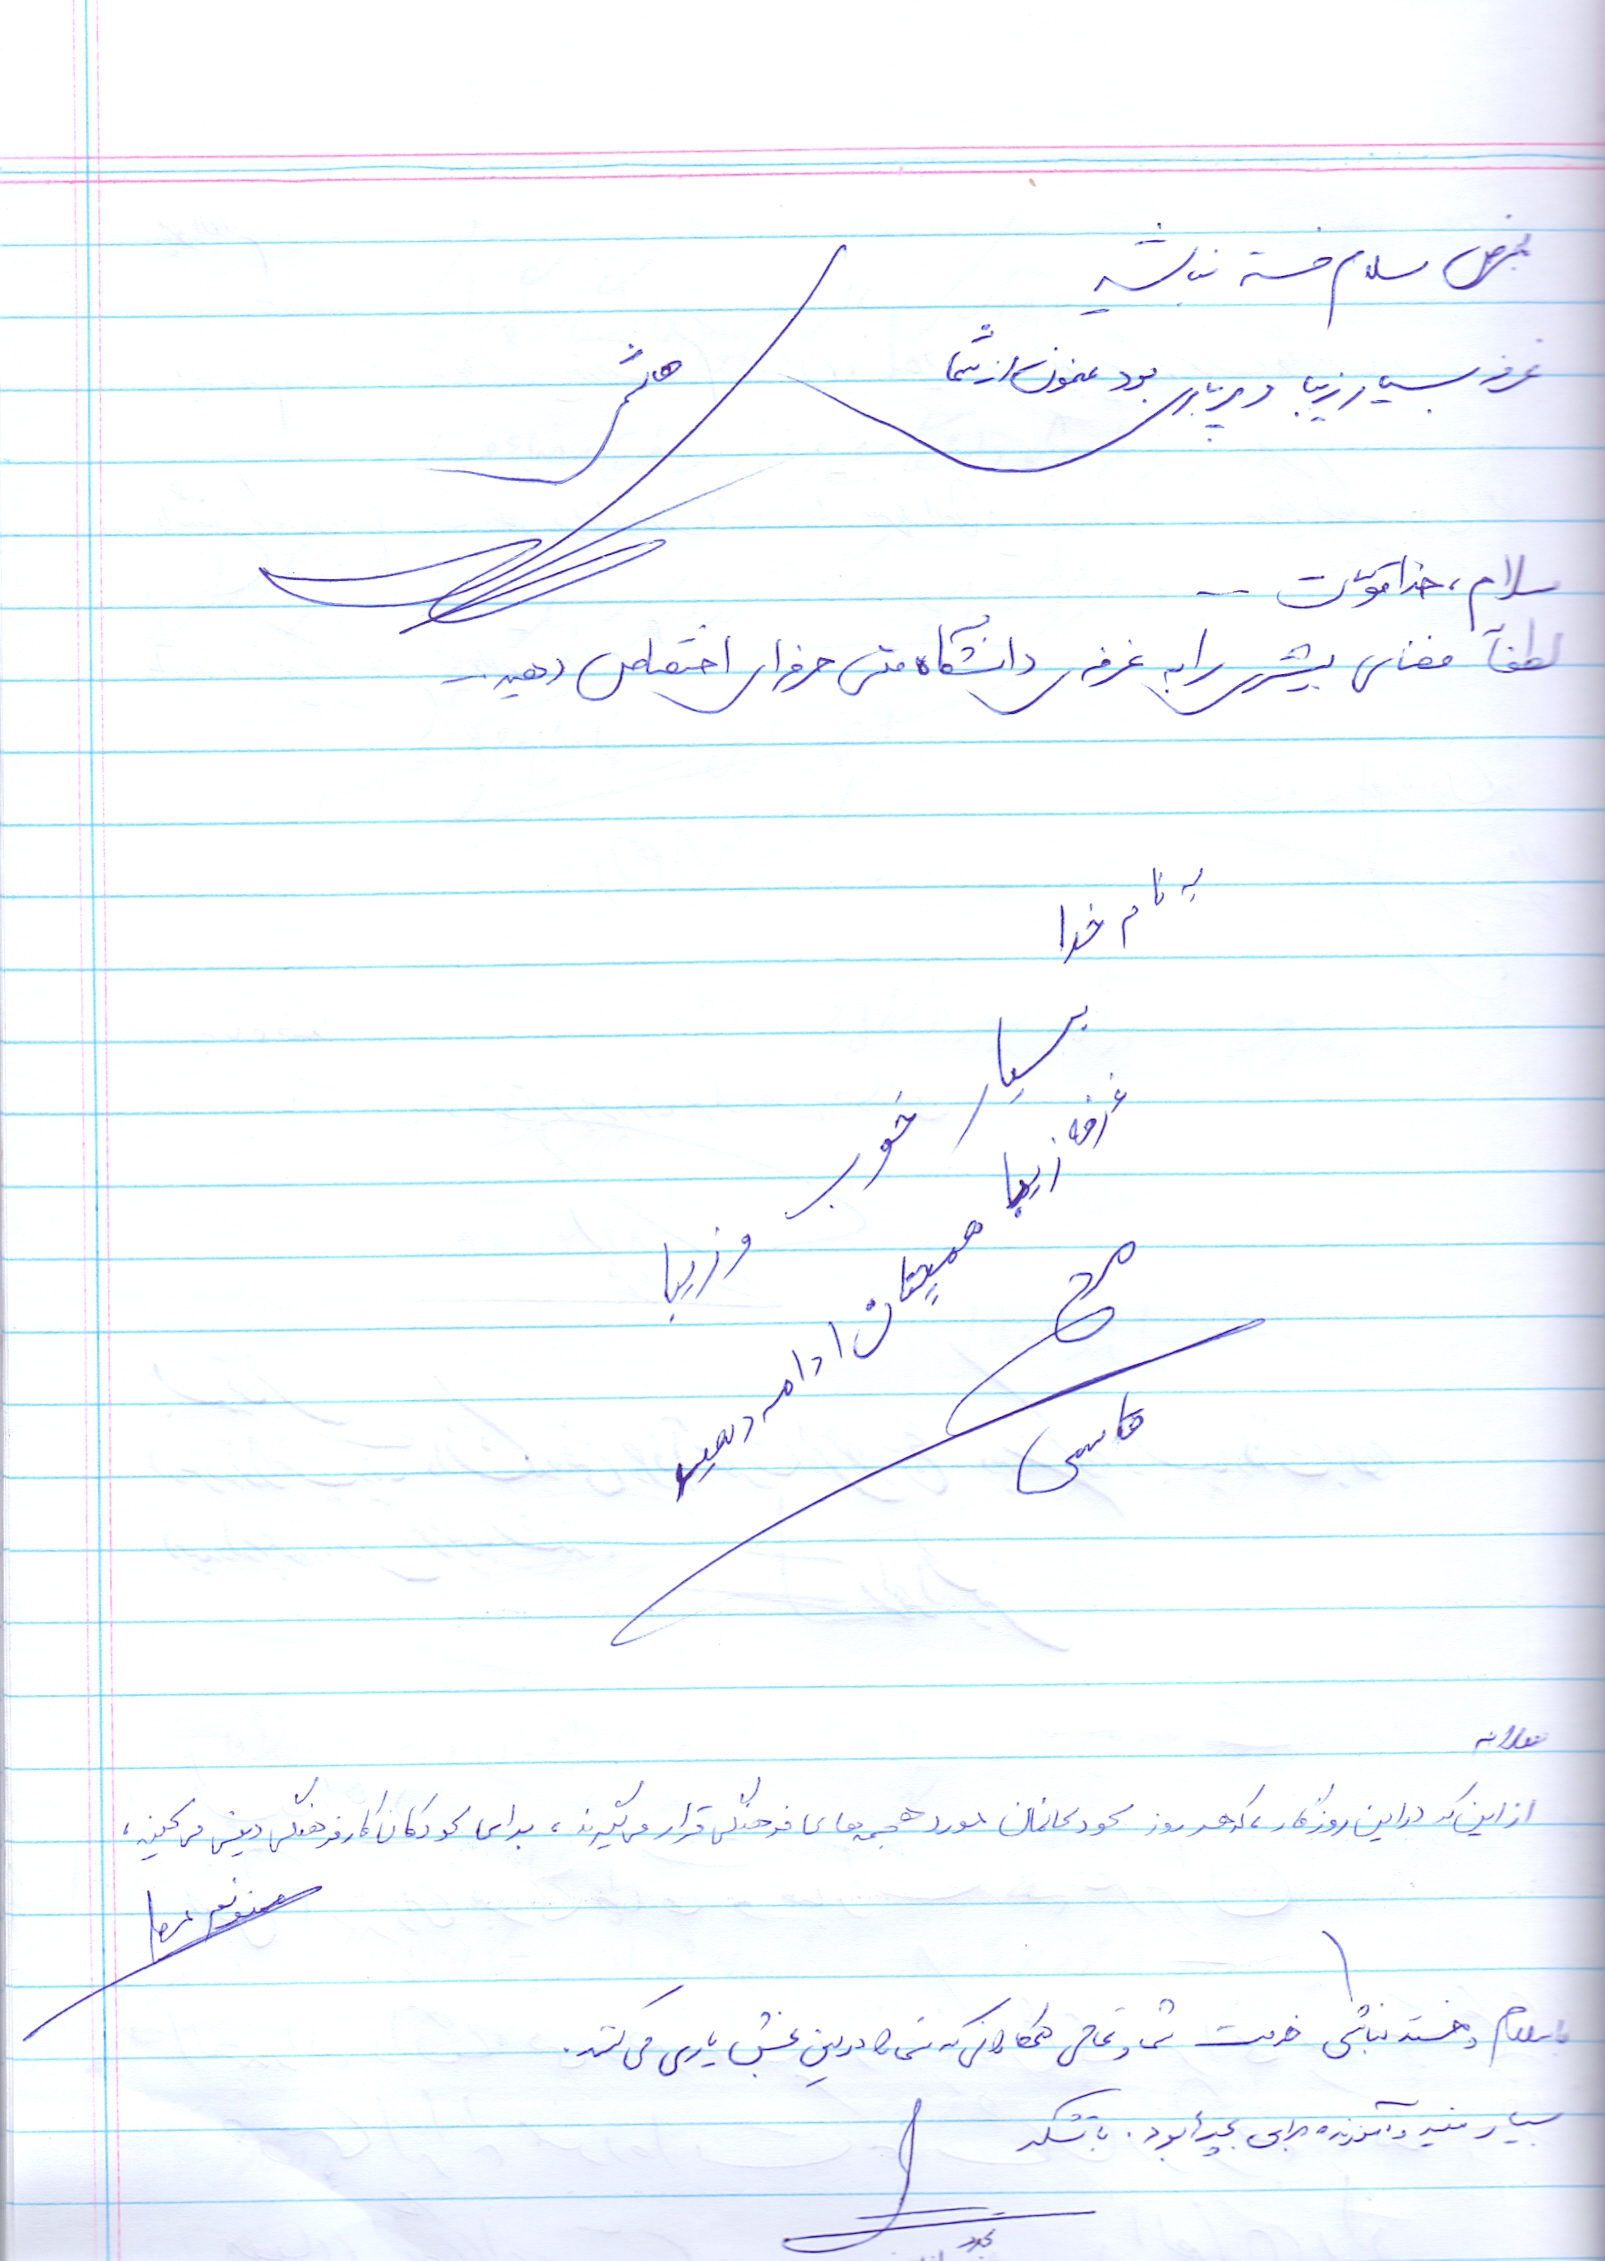 بعرض سلام خسته نباشید
غرفه بسیار زیبا و پرباری بود ممنون از شما
هاشمی
سلام، خدا قوت ...
لطفاً فضای بیشتری را به غرفه‌ی دانشگاه فنی حرفه‌ای اختصاص دهید...
به نام خدا
بسیار خوب و زیبا
غرفه زیبا همچنان ادامه دهید
قاسمی
از این که در این روزگار، که هر روز کودکانمان مورد هجمه‌های فرهنگی قرار می‌گیرند، برای کودکان کار فرهنگی دینی می‌کنید،
ممنونم
با سلام و خسته نباشی خدمت شما و تمامی همکارانی که شما را در این بخش یاری می‌کنند.
بسیار مفید و آموزنده برای بچه‌ها بود. با تشکر